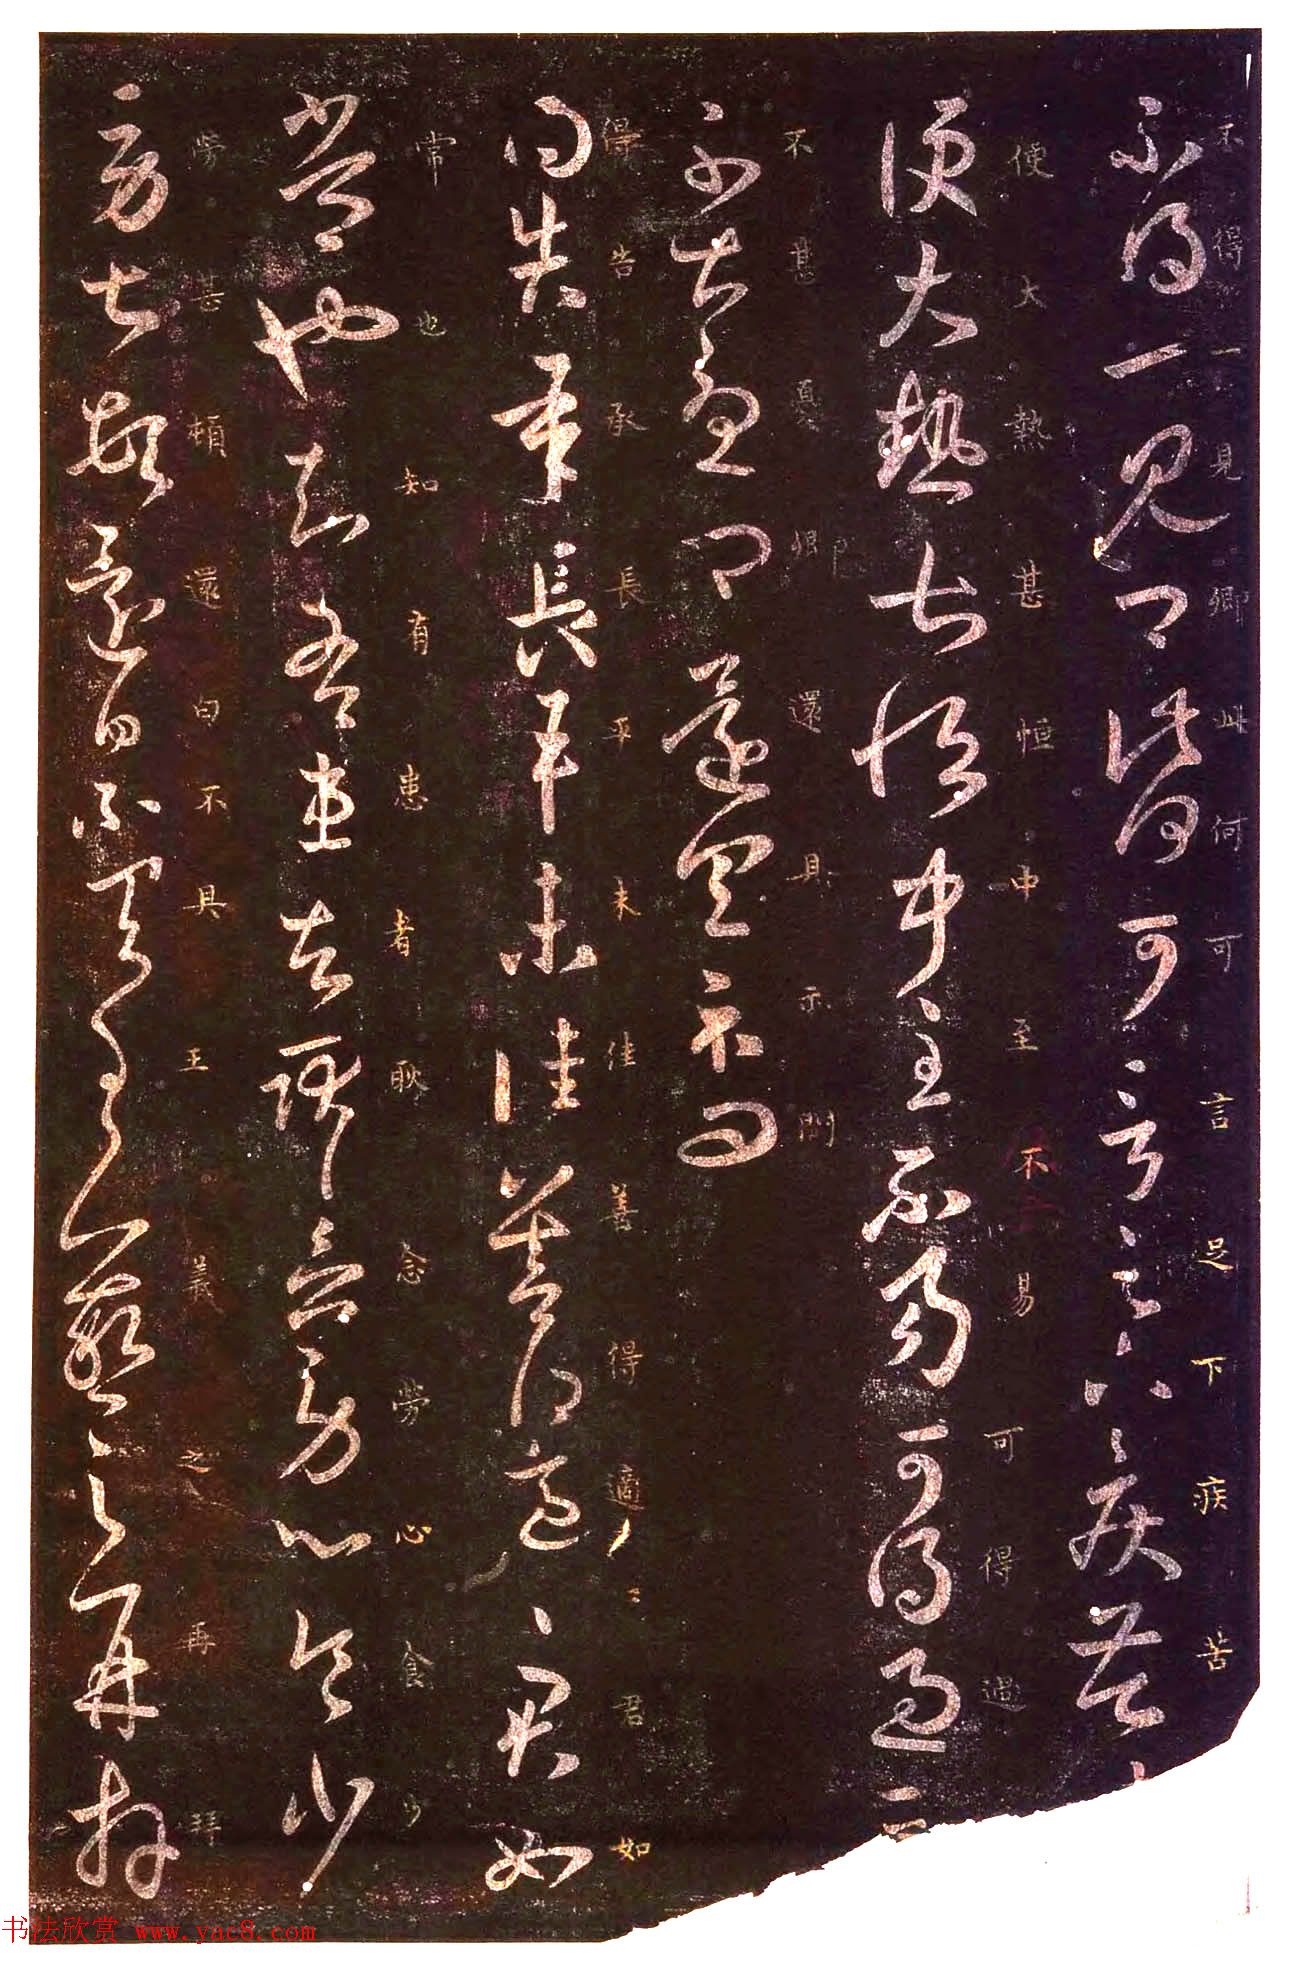 不得一見卿此何可言足下疾苦
不得一見卿此何可言足下疾苦
便大熱甚恒中至不易可得過
便大熱甚恒中至不易可得過
不甚憂卿還具示問
不甚憂卿還具示問
得告承長平未佳善得適君如
得告承長平未佳善得適君如
常也知有患者耿念勞心食少
常也知有患者耿念勞心食少
勞甚頓還白不具王羲之再拜
勞甚頓還白不具王羲之再拜
书法欣赏 www.yac8.com